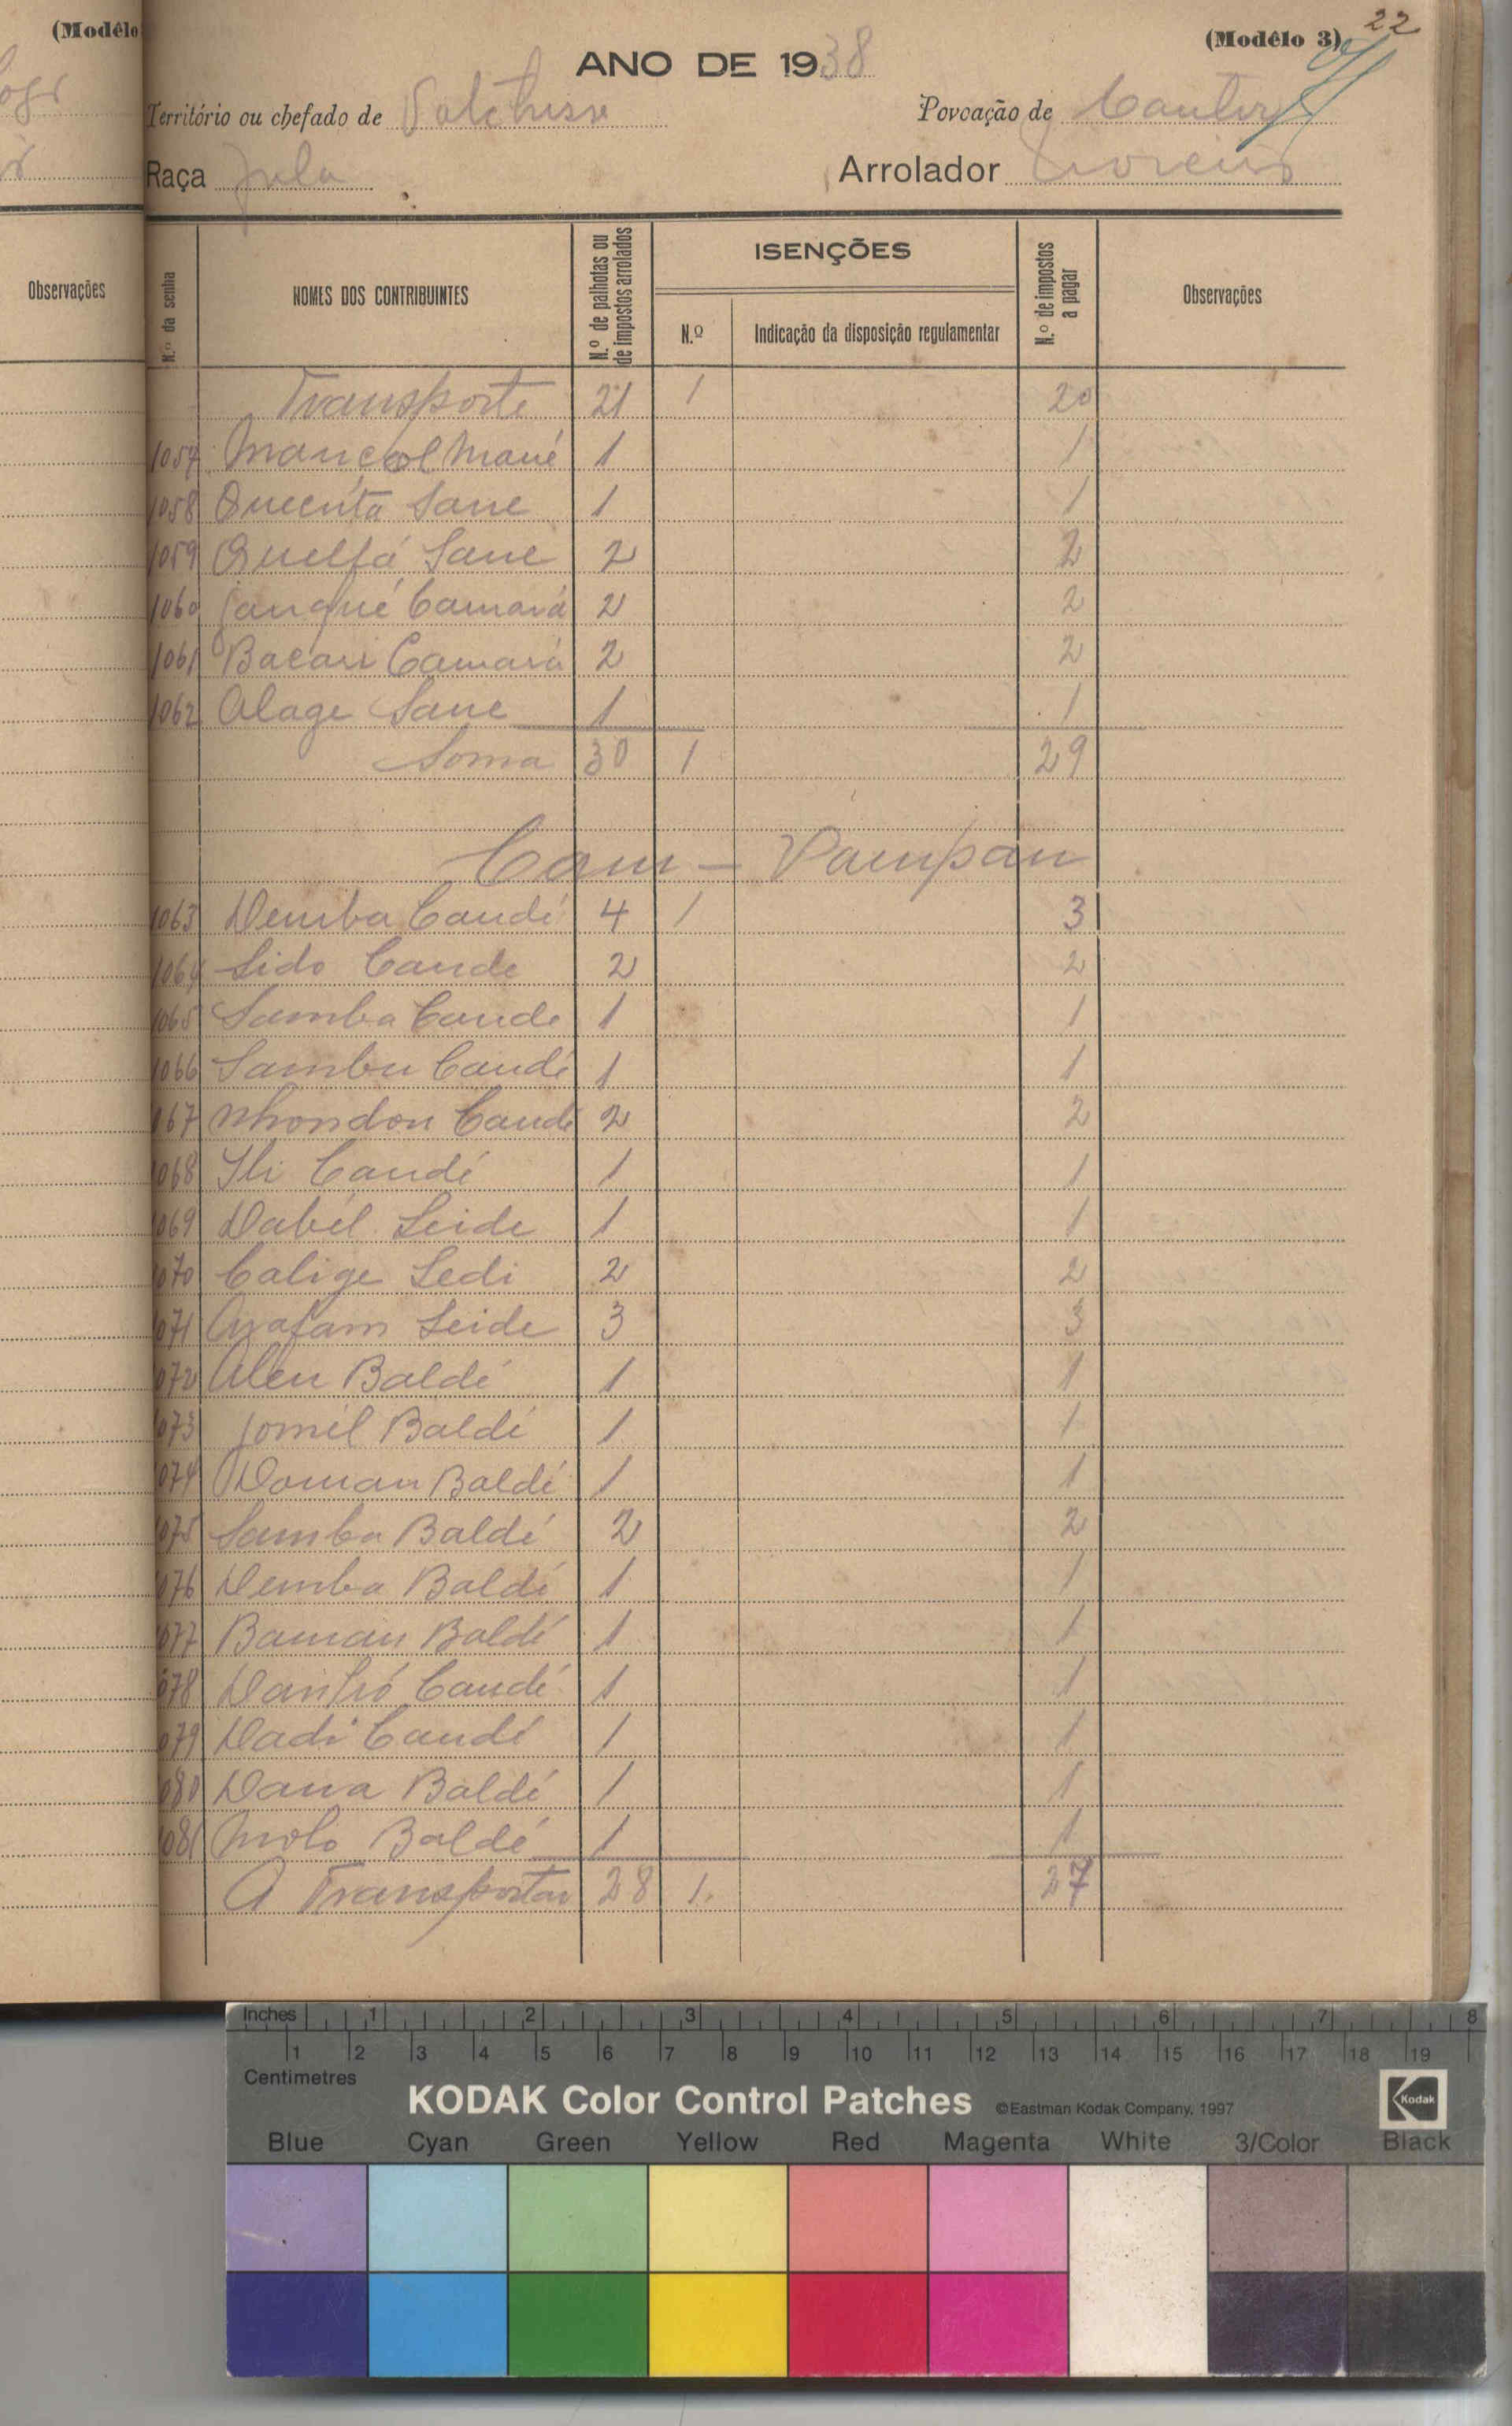 (Modêlo
(Modêlo 3)
22
ANO DE 1938
Território ou chefado de
Povoação de
Raça Jula
Arrolador Moreira
Observações
N.º da senha
NOMES DOS CONTRIBUINTES
N.º de palhotas ou de impostos arrolados
ISENÇÕES
N.º
Indicação da disposição regulamentar
N.º de impostos a pagar
Observações
Transporte 21 1 20
1057 Mané 1 1
1058 Quecuta Sane 1 1
1059 Quelfá Sane 2 2
1060 Janqué Camará 2 2
1061 Bacari Camará 2 2
1062 Alage Sane 1 1
Soma 30 1 29
Cam - Pampan
1063 Demba Candé 4 1 3
1064 Sido Cande 2 2
1065 Samba Cande 1 1
1066 Sambu Candé 1 1
067 Nhondon Candé 2 2
068 Candé 1 1
069 Dabél Seide 1 1
070 Calige Sedi 2 2
071 Seide 3 3
072 Aleu Baldé 1 1
073 Jomél Baldé 1 1
074 Doman Baldé 1 1
075 Samba Baldé 2 2
076 Demba Baldé 1 1
077 Baman Baldé 1 1
078 Candé 1 1
079 Dadi Candé 1 1
080 Baldé 1 1
081 Molo Baldé 1 1
A Transportar 28 1. 27
Inches 1 2 3 4 5 6 7 8
1 2 3 4 5 6 7 8 9 10 11 12 13 14 15 16 17 18 19
Centimetres
KODAK Color Control Patches ©Eastman Kodak Company, 1997 Kodak
Blue Cyan Green Yellow Red Magenta White 3/Color Black